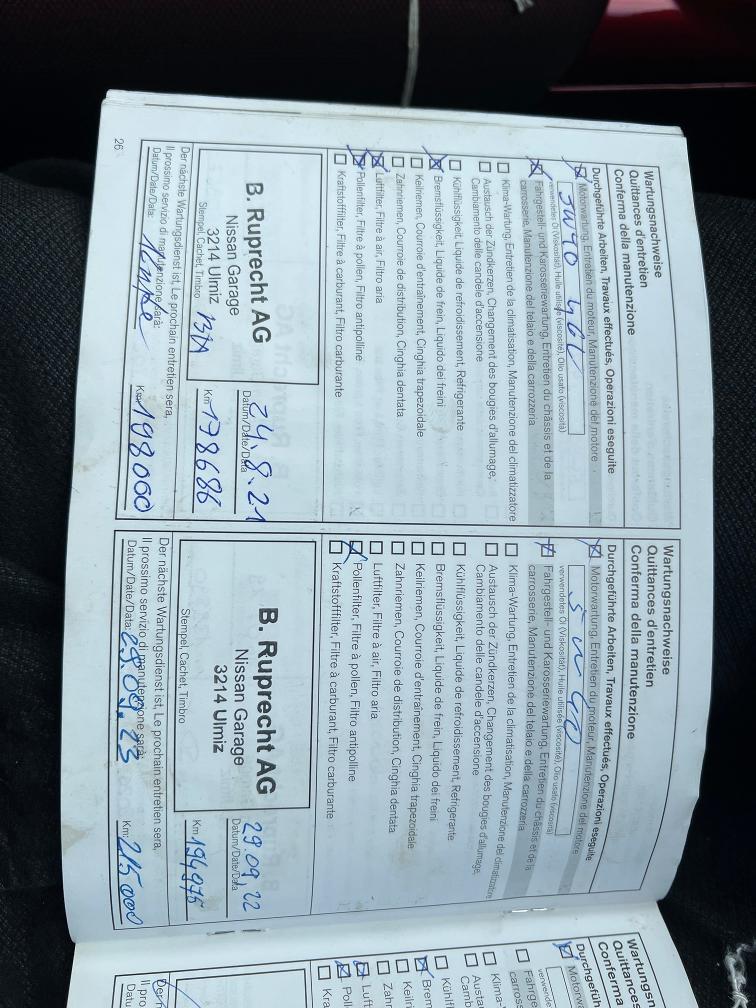 Wartungsnachweise
Quittances d'entretien
Conferma della manutenzione
Durchgeführte Arbeiten, Travaux effectués, Operazioni eseguite
Motorwartung, Entretien du moteur, Manutenzione del motore
5W40
verwendetes Öl (Viskosität), Huile utilisée (viscosité), Olio usato (viscosità)
Fahrgestell- und Karosseriewartung, Entretien du châssis et de la
carrosserie, Manutenzione del telaio e della carrozzeria
Klima-Wartung, Entretien de la climatisation, Manutenzione del climatizzatore
Austausch der Zündkerzen, Changement des bougies d'allumage,
Cambiamento delle candele d'accensione
Kühlflüssigkeit, Liquide de refroidissement, Refrigerante
Bremsflüssigkeit, Liquide de frein, Liquido dei freini
Keilriemen, Courroie d'entraînement, Cinghia trapezoidale
Zahnriemen, Courroie de distribution, Cinghia dentata
Luftfilter, Filtre à air, Filtro aria
Pollenfilter, Filtre à pollen, Filtro antipolline
Kraftstofffilter, Filtre à carburant, Filtro carburante
B. Ruprecht AG
Nissan Garage
3214 Ulmiz
Stempel, Cachet, Timbro
24.8.21
Datum/Date/Data
178686
Km
Der nächste Wartungsdienst ist, Le prochain entretien sera,
Il prossimo servizio di manutenzione sarà:
Datum/Date/Data:
Km: 198000
26
Wartungsnachweise
Quittances d'entretien
Conferma della manutenzione
Durchgeführte Arbeiten, Travaux effectués, Operazioni eseguite
Motorwartung, Entretien du moteur, Manutenzione del motore
5W40
verwendetes Öl (Viskosität), Huile utilisée (viscosité), Olio usato (viscosità)
Fahrgestell- und Karosseriewartung, Entretien du châssis et de la
carrosserie, Manutenzione del telaio e della carrozzeria
Klima-Wartung, Entretien de la climatisation, Manutenzione del climatizzatore
Austausch der Zündkerzen, Changement des bougies d'allumage,
Cambiamento delle candele d'accensione
Kühlflüssigkeit, Liquide de refroidissement, Refrigerante
Bremsflüssigkeit, Liquide de frein, Liquido dei freini
Keilriemen, Courroie d'entraînement, Cinghia trapezoidale
Zahnriemen, Courroie de distribution, Cinghia dentata
Luftfilter, Filtre à air, Filtro aria
Pollenfilter, Filtre à pollen, Filtro antipolline
Kraftstofffilter, Filtre à carburant, Filtro carburante
B. Ruprecht AG
Nissan Garage
3214 Ulmiz
Stempel, Cachet, Timbro
29.09.22
Datum/Date/Data
194975
Km
Der nächste Wartungsdienst ist, Le prochain entretien sera,
Il prossimo servizio di manutenzione sarà:
Datum/Date/Data: 29.09.23
Km: 215000
Wartungsn
Quittances
Conferma
Durchgefüh
Motorw
verwende
Fahrge
carross
Klima-
Austa
Camb
Kühlfl
Brem
Keilri
Zahn
Luft
Poll
Kra
Der n
Il pro
Datum